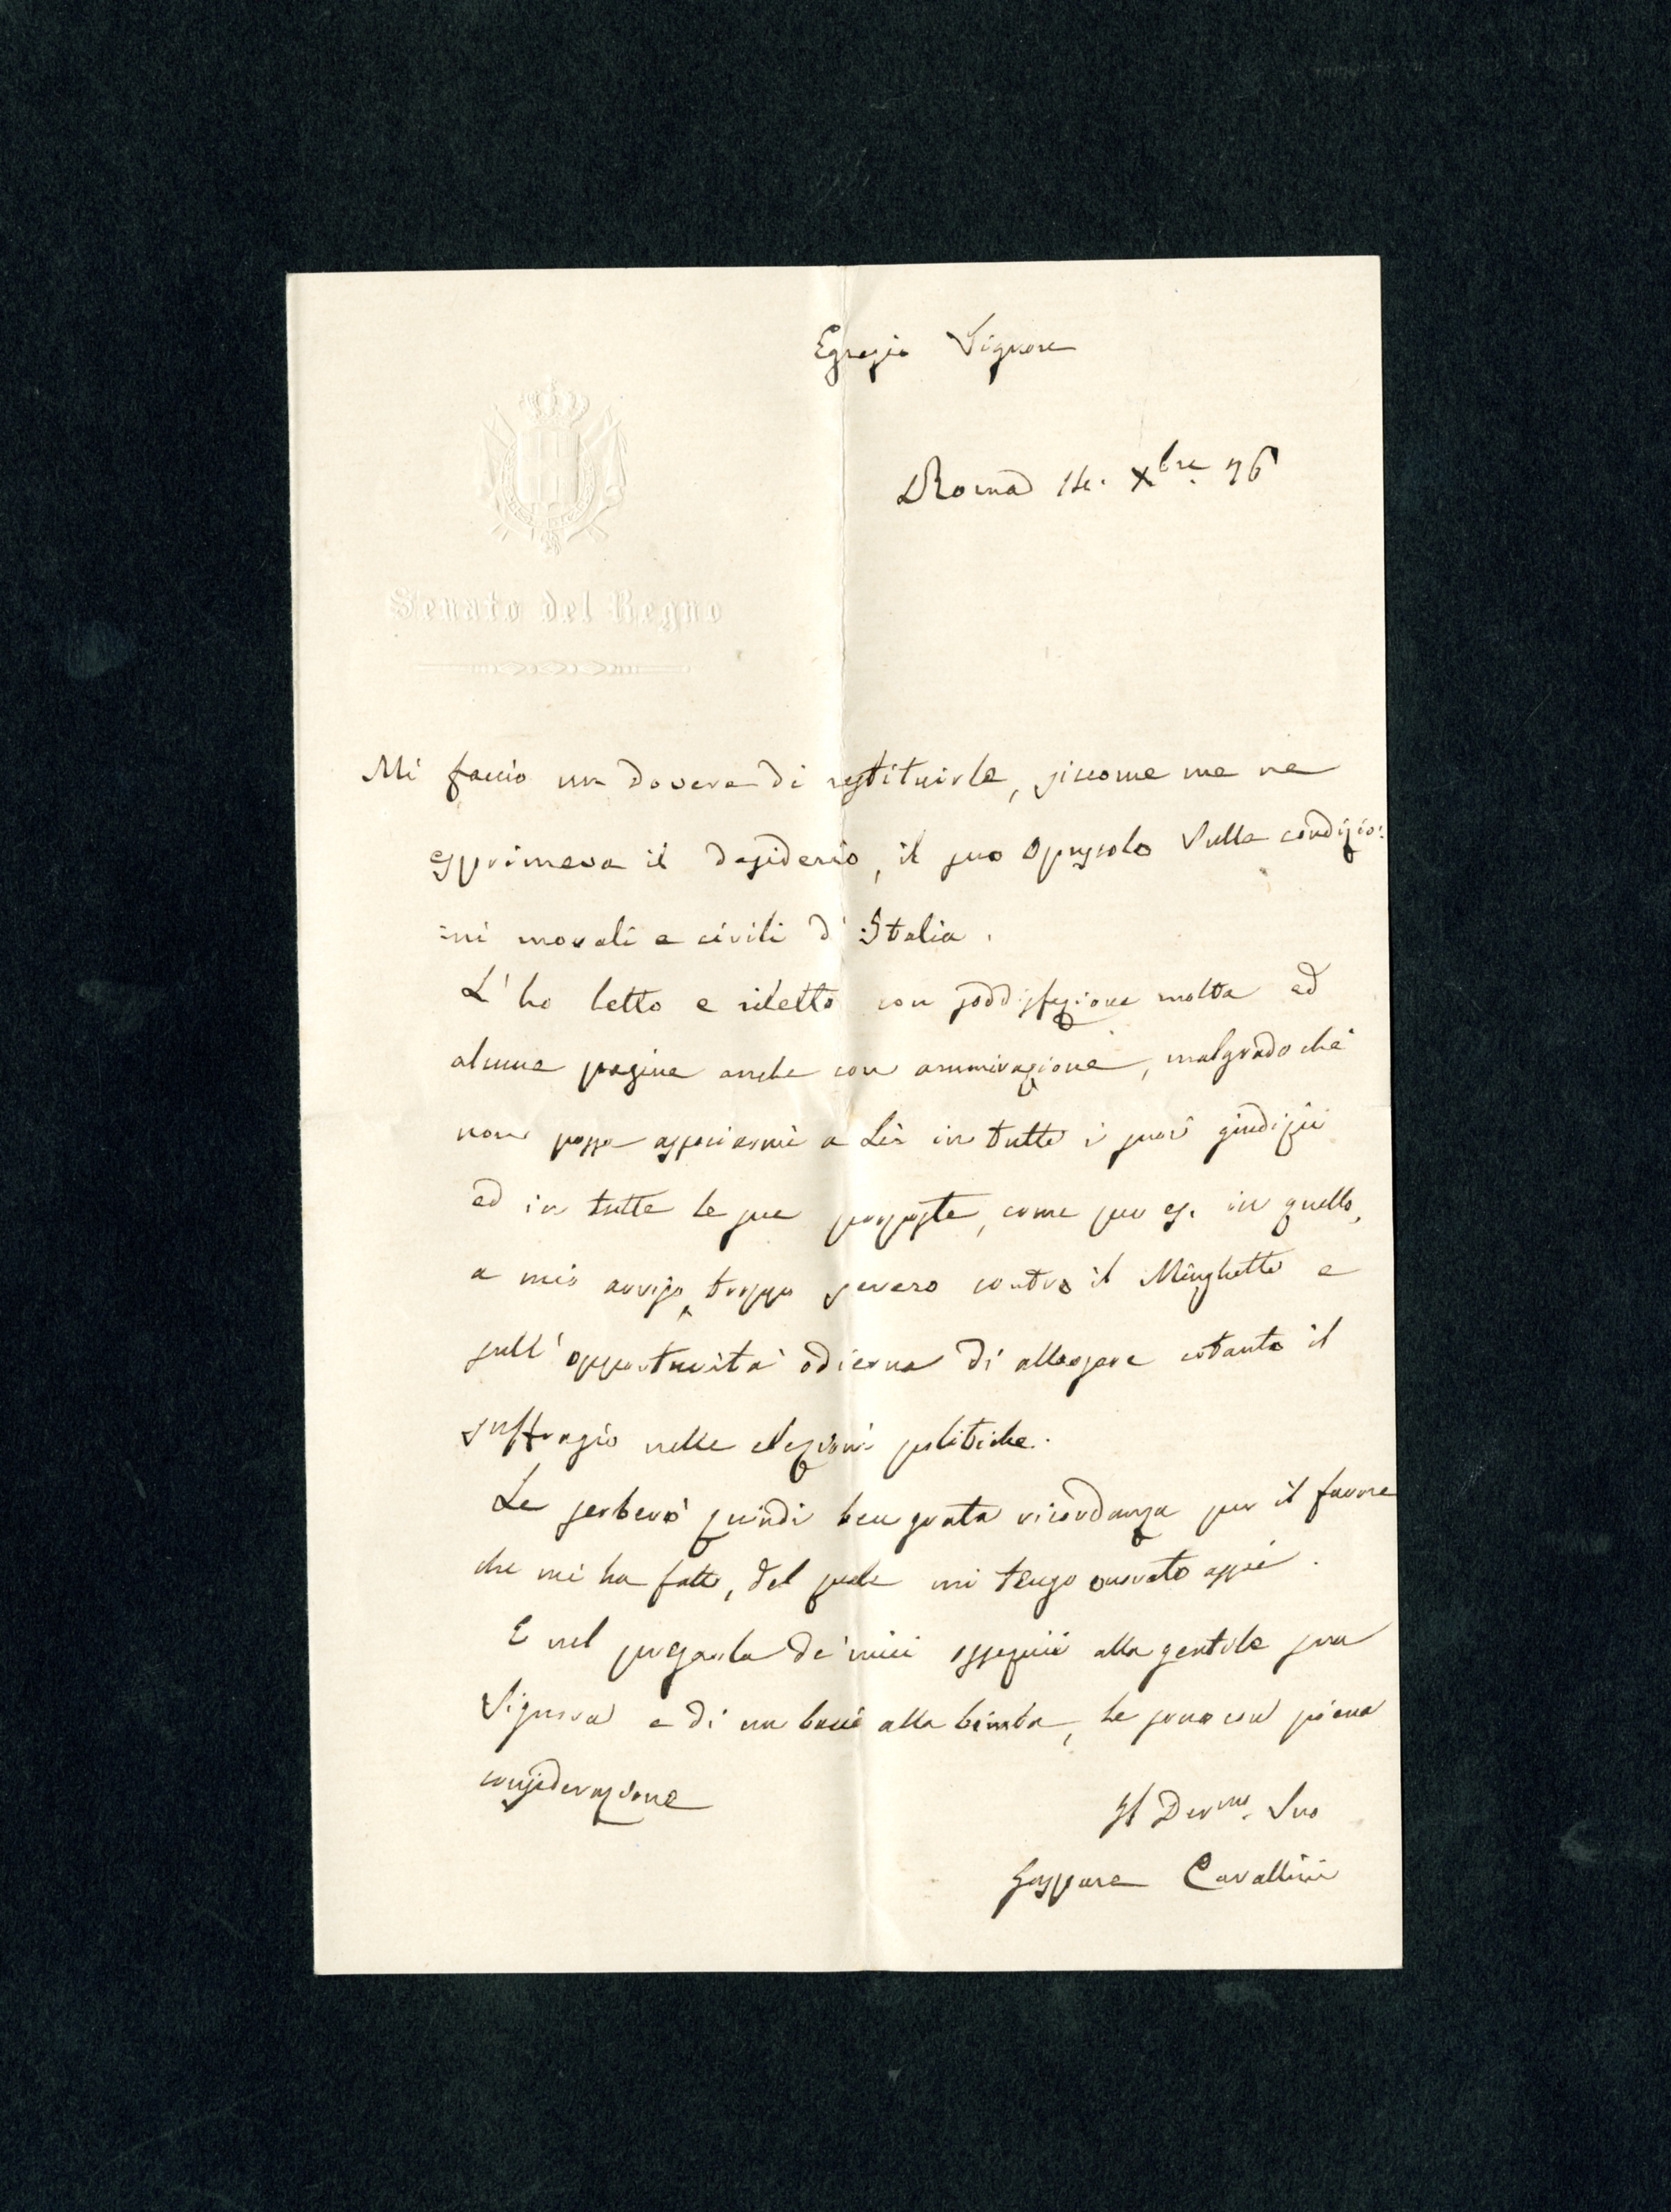 Egregio Signore
Roma 14. Xbre 76
Senato del Regno
Mi faccio un dovere di restituirle, siccome me ne
esprimeva il desiderio, il suo Opuscolo Sulle condizio:
:ni morali e civili d'Italia.
L'ho letto e riletto con soddisfazione molta ed
alcune pagine anche con ammirazione, malgrado che
non possa associarmi a Lei in tutti i suoi giudizii
ed in tutte le sue proposte, come per es. in quello,
a mio avviso, troppo severo contro il Minghetti e
sull'opportunità odierna di allargare cotanto il
suffragio nelle elezioni politiche.
Le serberò quindi ben grata ricordanza per il favore
che mi ha fatto, del quale mi tengo onorato assai.
E nel pregarla de' miei ossequii alla gentile sua
Signora e di un bacio alla bimba, Le sono con piena
considerazione
Il Devmo. Suo
Gaspare Cavallini